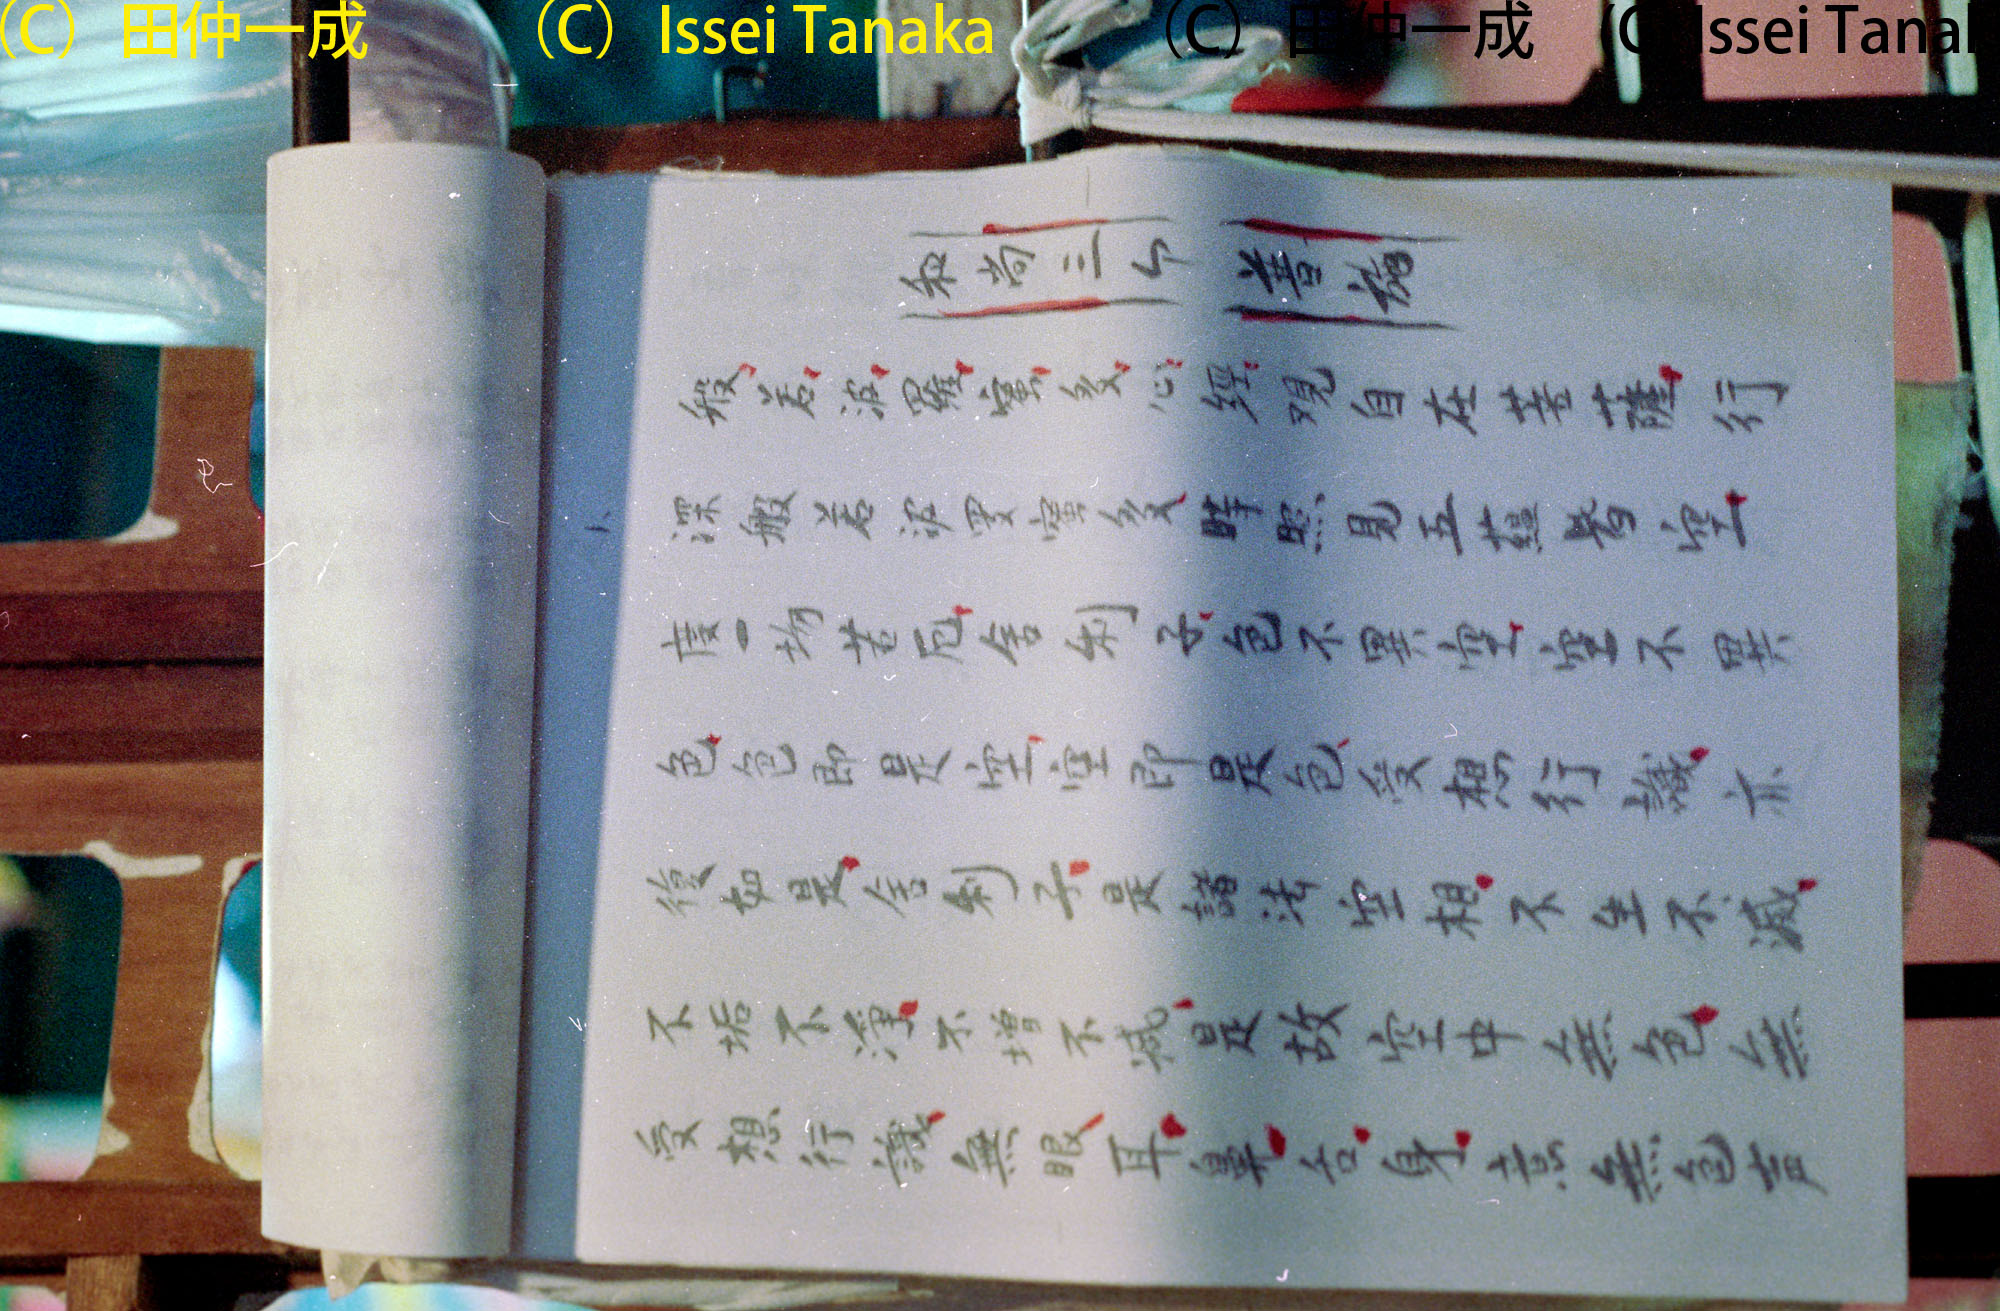 （C）田仲一成 （C）Issei Tanaka （C）田仲一成 （C）Issei Tanak
和尚三
般若波羅蜜多心經現自在菩薩行
深般若波罗蜜多時照見五蘊皆空
度一切苦厄舍利子色不異空空不異
色色即是空空即是色受想行識亦
復如是舍利子是諸法空相不生不滅
不垢不淨不增不減是故空中無色無
受想行識無眼耳鼻舌身意無色声